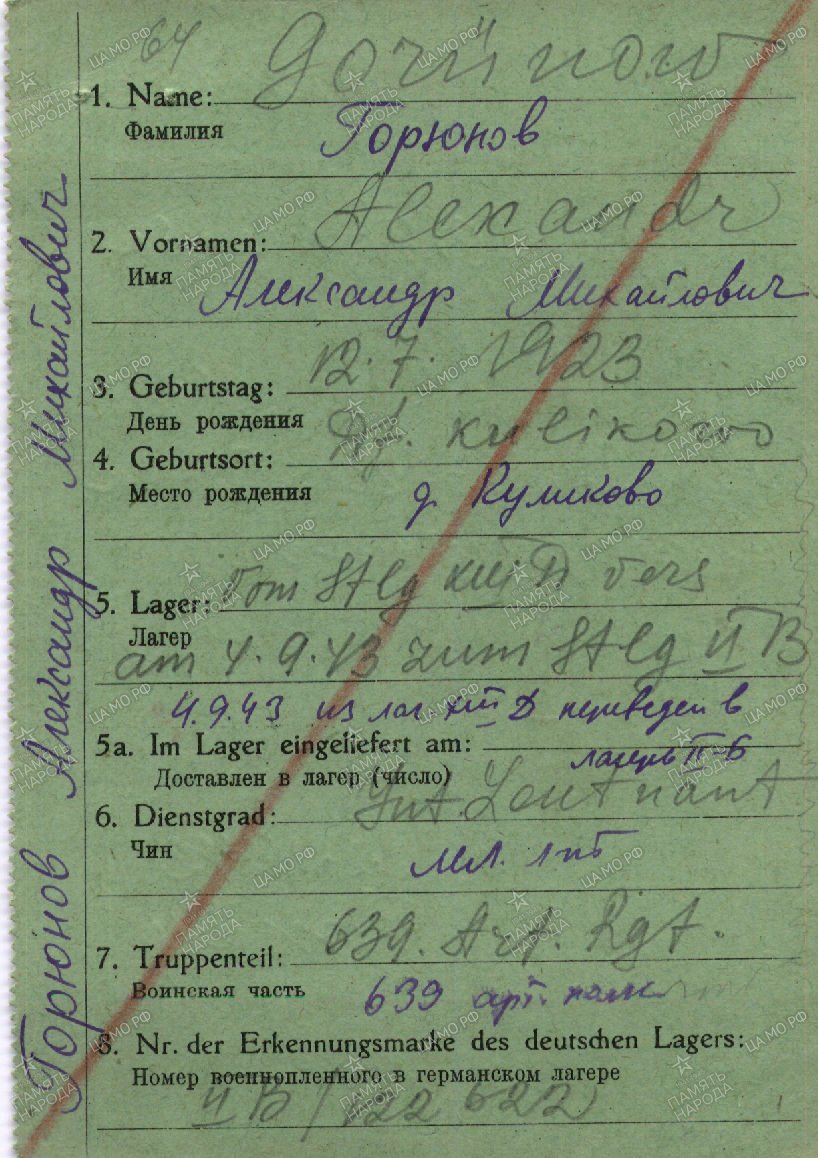 64
Gorünow
1. Name:
Фамилия
Горюнов
Alexandr
2. Vornamen:
Имя
Александр Михайлович
12.7.1923
3. Geburtstag:
День рождения
Df. Kulikowo
4. Geburtsort:
Место рождения
д. Куликово
5. Lager: vom Stlg XIII D vers
Лагер
am 4.9.43 zum Stlg II B
4.9.43 из лаг XIII Д переведен в
лагерь II-Б
5a. Im Lager eingeliefert am:
Доставлен в лагер (число)
6. Dienstgrad: Leutnant
Чин
Мл. л-т
7. Truppenteil: 639. Art. Rgt.
Воинская часть
639 арт. полк
8. Nr. der Erkennungsmarke des deutschen Lagers:
Номер военнопленного в германском лагере
II B / 122 622
Горюнов Александр Михайлович
ПАМЯТЬ НАРОДА
ЦАМО.РФ